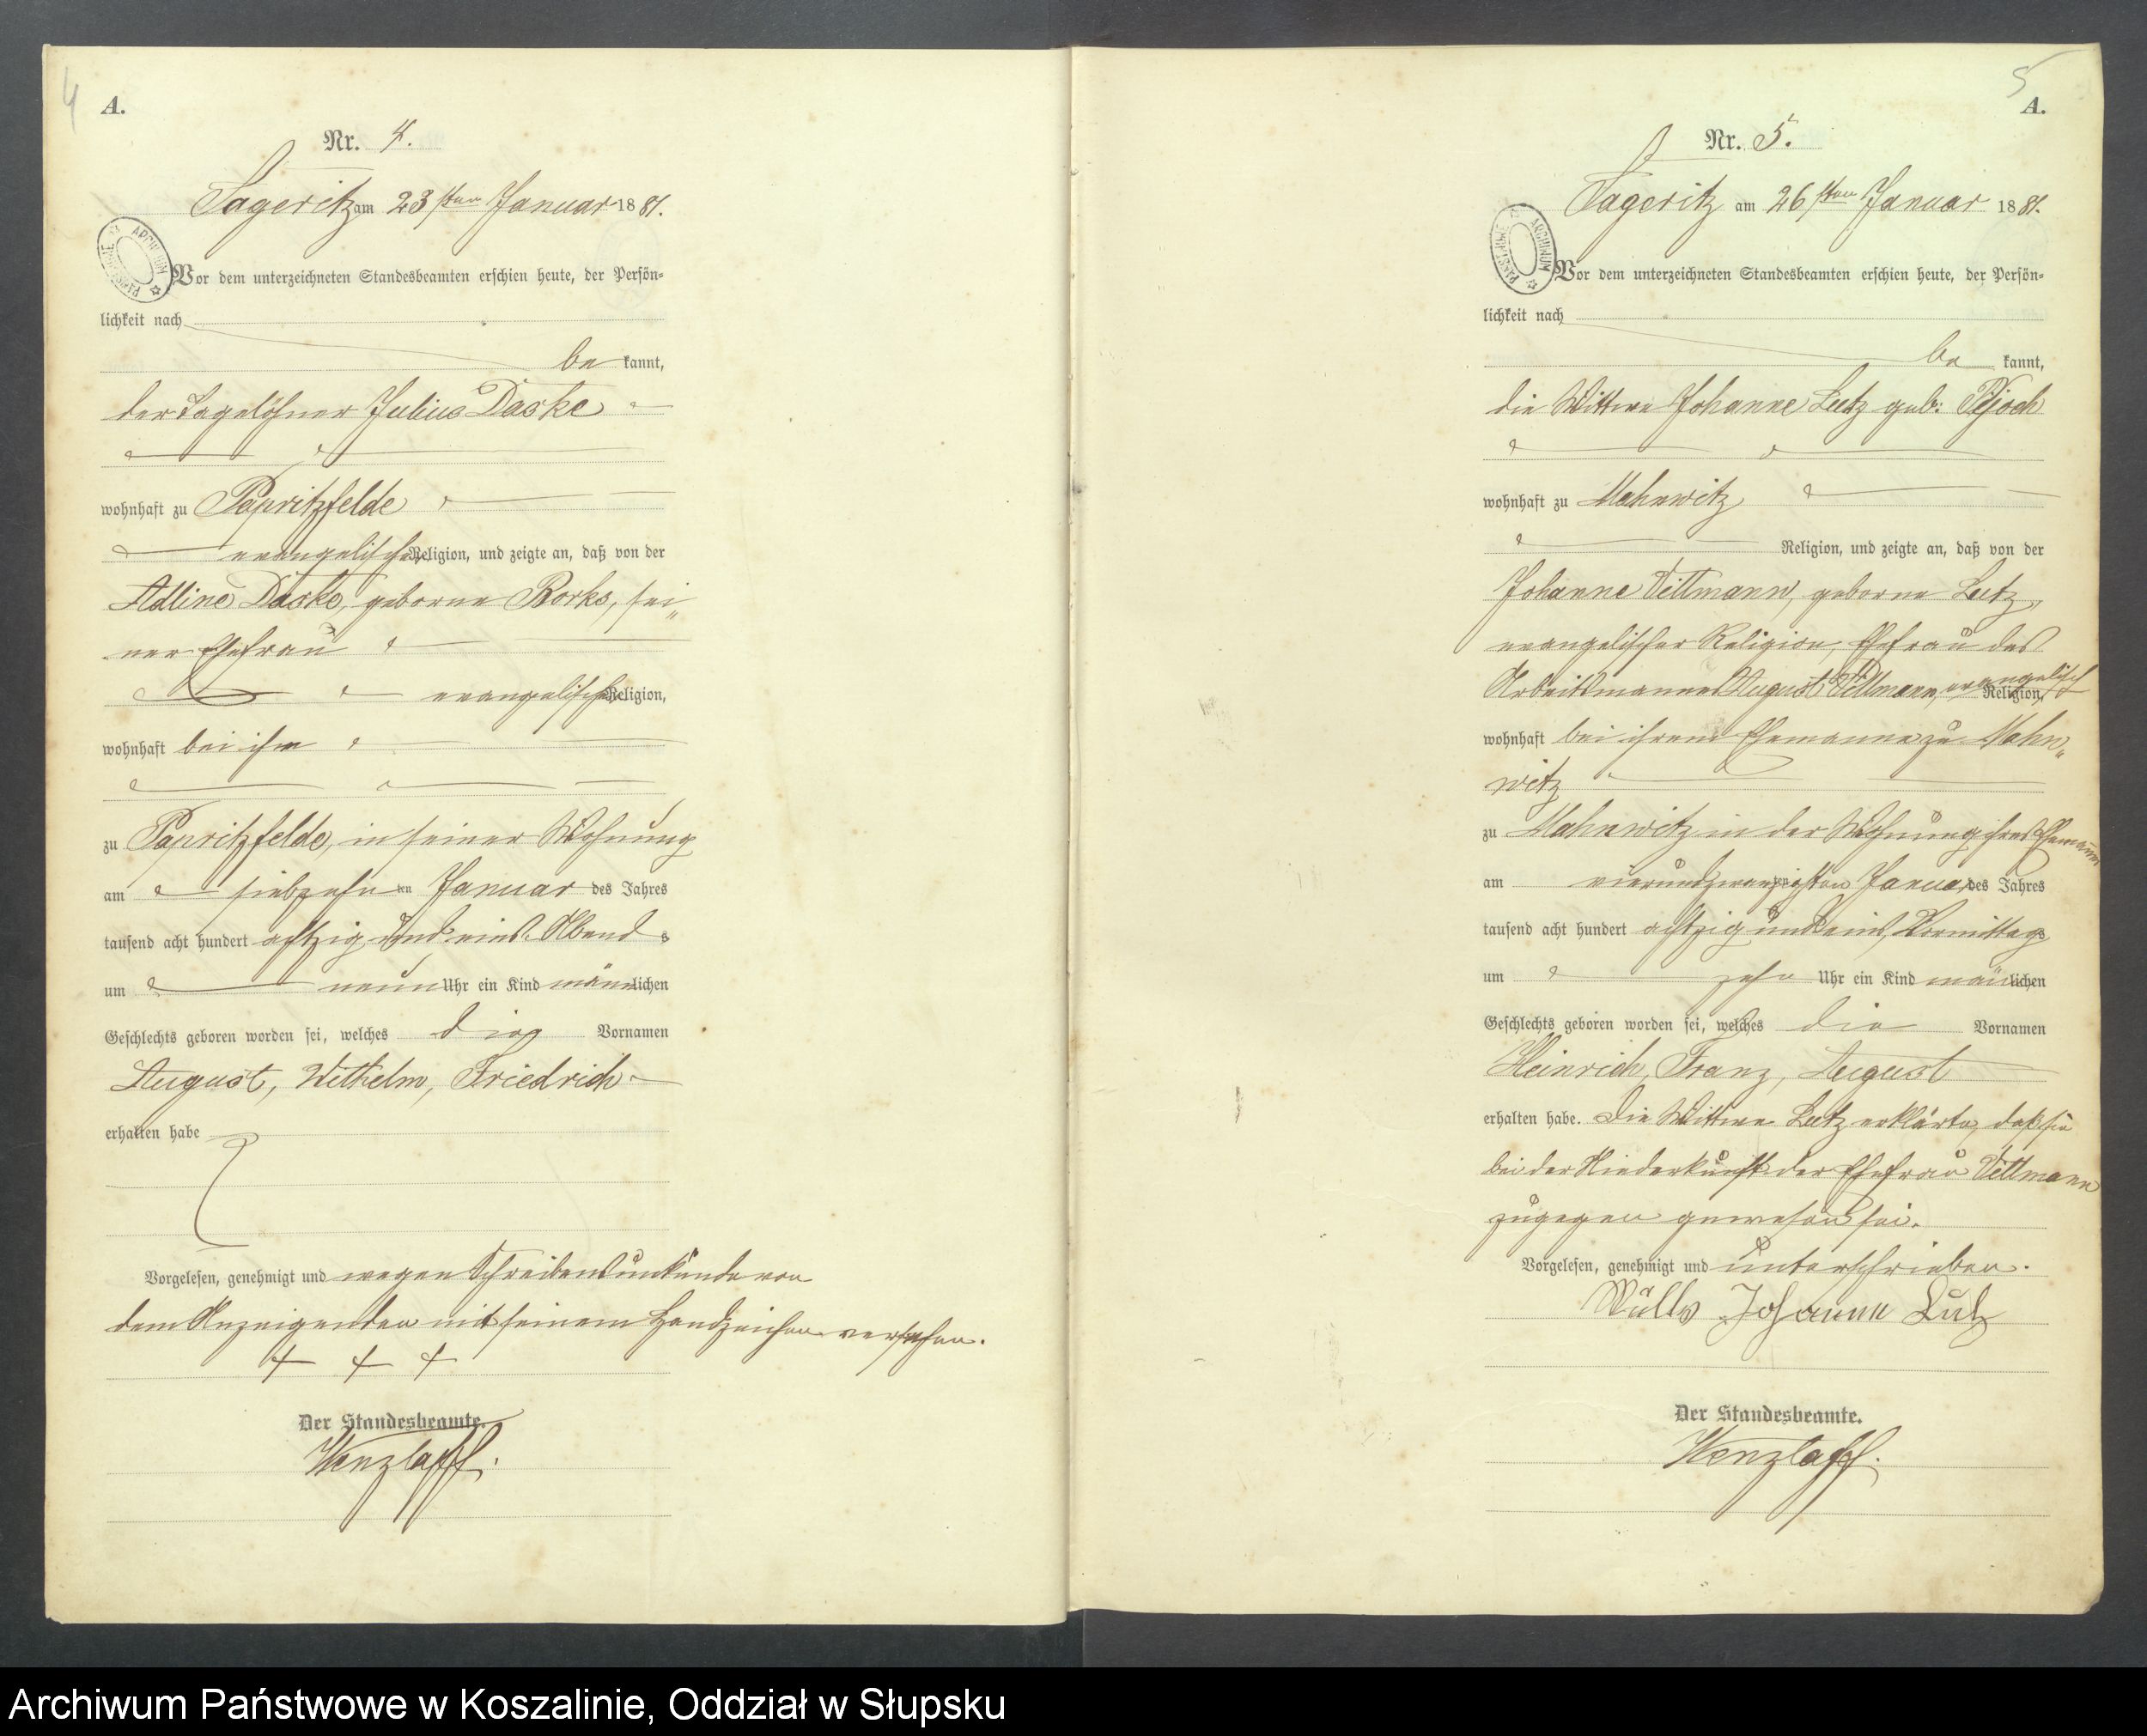 4
A.
Nr. 4.
Sageritz am 23sten Januar 1881.
Vor dem unterzeichneten Standesbeamten erschien heute, der Persön-
lichkeit nach
be kannt,
der Tagelöhner Julius Daske
wohnhaft zu Papritzfelde
evangelischer Religion, und zeigte an, daß von der
Adline Daske, geborne Borks, sei„
ner Ehefrau
evangelischer Religion,
wohnhaft bei ihm
zu Papritzfelde, in seiner Wohnung
am siebzehn ten Januar des Jahres
tausend acht hundert achtzig und eins Abend s
um neun Uhr ein Kind männlichen
Geschlechts geboren worden sei, welches die Vornamen
August, Wilhelm, Friedrich
erhalten habe
Vorgelesen, genehmigt und wegen Schreibensunkunde von
dem Anzeigenden mit seinem Handzeichen versehen.
+ + +
Der Standesbeamte.
Wenzlaff.
5
A.
Nr. 5.
Sageritz am 26sten Januar 1881.
Vor dem unterzeichneten Standesbeamten erschien heute, der Persön-
lichkeit nach
be kannt,
die Wittwe Johanne Lutz geb:
wohnhaft zu Mahnwitz
Religion, und zeigte an, daß von der
Johanne Villmann, geborne Lutz,
evangelischer Religion, Ehefrau des
Arbeitsmannes August Villmann, evangelisch Religion,
wohnhaft bei ihrem Ehemanne zu Mahn„
witz
zu Mahnwitz in der Wohnung ihres Ehemannes
am vierundzwanzigsten Januar des Jahres
tausend acht hundert achtzig und eins, Vormittags
um zehn Uhr ein Kind männlichen
Geschlechts geboren worden sei, welches die Vornamen
Heinrich, Franz, August
erhalten habe. Die Wittwe Lutz erklärte, daß sie
bei der Niederkunft der Ehefrau Villmann
zugegen gewesen sei.
Vorgelesen, genehmigt und unterschrieben.
Johanne Lutz
Der Standesbeamte.
Wenzlaff.
Archiwum Państwowe w Koszalinie, Oddział w Słupsku